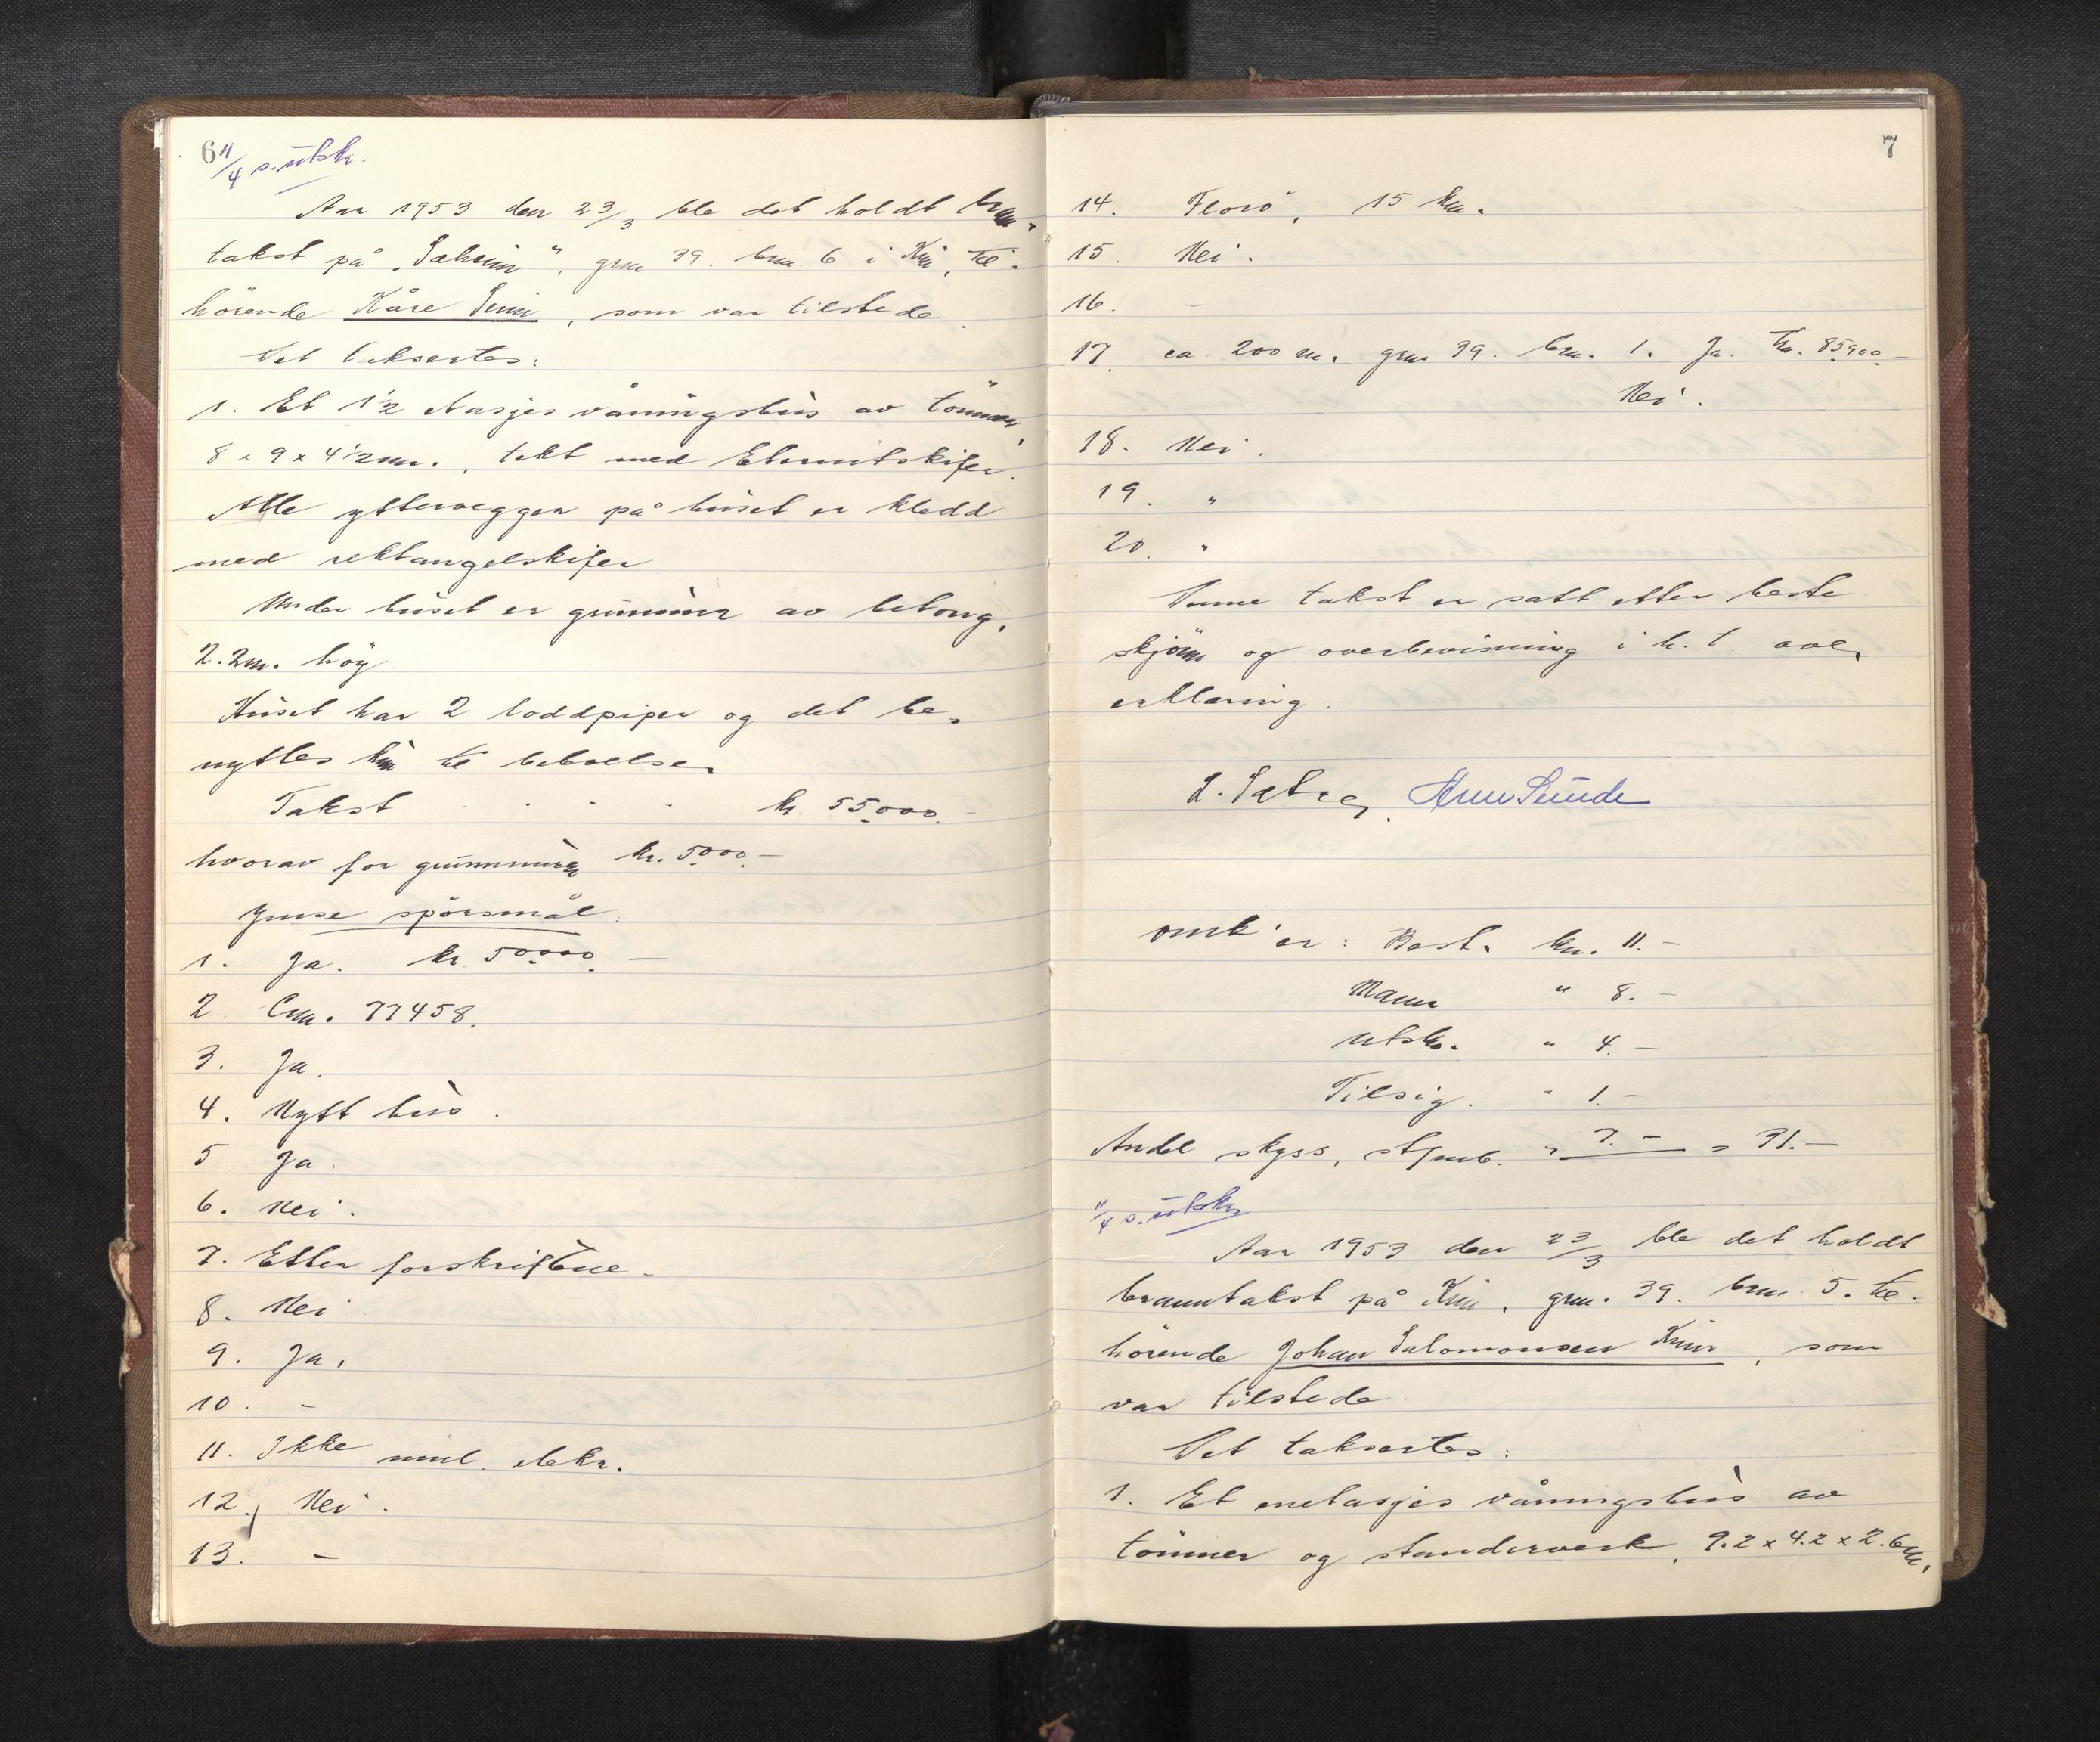 6
11/4 s. utskr.
Aar 1953 den 23/3 ble det holdt brann-
takst på „Sæheim", grnr 39. brnr. 6 i Kinn, til-
hörende Kåre Seim, som var tilstede.
Det taksertes:
1. Et 1½ etasjes våningshus av tömmer
8 x 9 x 4½ m., tekt med Eternitskifer.
Alle yttervegger på huset er kledd
med rektangelskifer
Under huset er grunnmur av betong,
2.2 m. höy
Huset har 2 loddpiper og det be-
nyttes kun til beboelse.
Takst . . . . kr. 55.000.-
hvorav for grunnmuren kr. 5.000.-
Ymse spörsmål.
1. Ja. kr 50.000.-
2 Cnr. 77458.
3. Ja.
4. Nytt hus.
5 Ja
6. Nei.
7. Etter forskriftene.
8. Nei
9. Ja.
10. -
11. Ikke innl. elektr.
12. Nei.
13. -
7
14. Florö, 15 km.
15. Nei.
16. -
17. ca 200 m. grnr 39. brnr. 1. Ja. kr. 85.900.-
Nei.
18. Nei.
19. "
20. "
Denne takst er satt etter beste
skjönn og overbevisning i h. t. avl.
erklæring.
omk'er: Best. kr. 11.-
Mann " 8.-
Utskr. " 4.-
Tilsig. " 1.-
Andel skyss, " 7.- = 31.-
11/4 s. utskr
Aar 1953 den 23/3 ble det holdt
branntakst på Kinn, grnr. 39. brnr. 5. til-
hörende Johan Salomonsen Kinn, som
var tilstede
Det taksertes:
1. Et enetasjes våningshus av
tömmer og standerverk, 9.2 x 4.2 x 2.6 m.